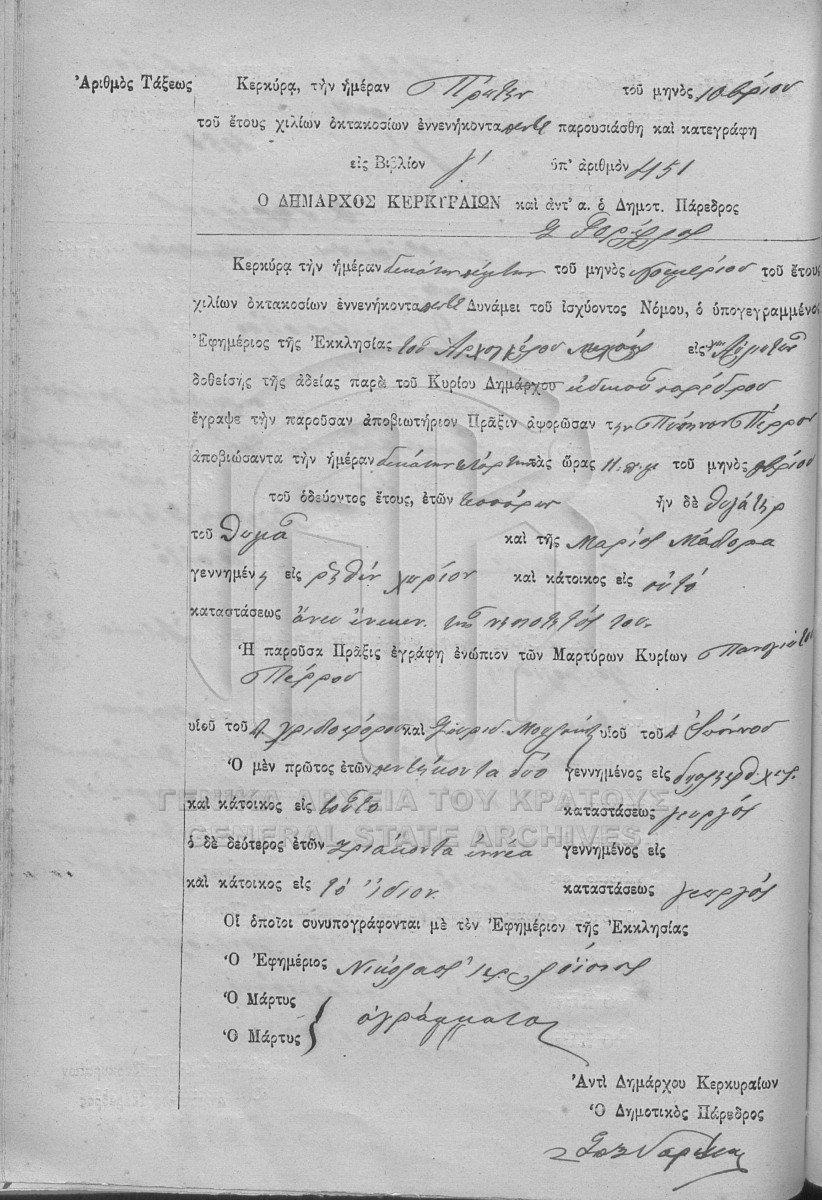 Ἀριθμὸς Τάξεως
Κερκύρα, τὴν ἡμέραν Πρώτην τοῦ μηνὸς 10βρίου
τοῦ ἔτους χιλίων ὀκτακοσίων ἐννενήκοντα πέντε παρουσιάσθη καὶ κατεγράφη
εἰς Βιβλίον γ' ὑπ' ἀριθμὸν 451
Ὁ ΔΗΜΑΡΧΟΣ ΚΕΡΚΥΡΑΙΩΝ καὶ ἀντ' α. ὁ Δημοτ. Πάρεδρος
Κερκύρα τὴν ἡμέραν δεκάτην πέμπτην τοῦ μηνὸς Νοεμβρίου τοῦ ἔτους
χιλίων ὀκτακοσίων ἐννενήκοντα πέντε Δυνάμει τοῦ ἰσχύοντος Νόμου, ὁ ὑπογεγραμμένος
Ἐφημέριος τῆς Ἐκκλησίας τοῦ Ἀρχαγγέλου Μιχαὴλ εἰς
δοθείσης τῆς ἀδείας παρὰ τοῦ Κυρίου Δημάρχου εἰδικοῦ παρέδρου
ἔγραψε τὴν παροῦσαν ἀποβιωτήριον Πρᾶξιν ἀφορῶσαν τὴν Πέρρου
ἀποβιώσαντα τὴν ἡμέραν δεκάτην τετάρτην τὰς ὥρας 11 π.μ τοῦ μηνὸς 9βρίου
τοῦ ὁδεύοντος ἔτους, ἐτῶν τεσσάρων ἦν δὲ θυγάτηρ
τοῦ Θωμᾶ καὶ τῆς Μαρίας Μάθορα
γεννημένη εἰς χωρίον καὶ κάτοικος εἰς αὐτό
καταστάσεως ἄνευ ἕνεκεν τῆς νηπιότητός του.
Ἡ παροῦσα Πρᾶξις ἐγράφη ἐνώπιον τῶν Μαρτύρων Κυρίων Παναγιώτου
Πέρρου
υἱοῦ τοῦ Χριστοφόρου καὶ Σπυρίδ. υἱοῦ τοῦ Ἰωάννου
Ὁ μὲν πρῶτος ἐτῶν πεντήκοντα δύο γεννημένος εἰς
καὶ κάτοικος εἰς τοῦτο καταστάσεως γεωργός
ὁ δὲ δεύτερος ἐτῶν τριάκοντα ἐννέα γεννημένος εἰς
καὶ κάτοικος εἰς τὸ ἴδιον. καταστάσεως γεωργός
Οἱ ὁποῖοι συνυπογράφονται μὲ τὸν Ἐφημέριον τῆς Ἐκκλησίας
Ὁ Ἐφημέριος Νικόλαος
Ὁ Μάρτυς
Ὁ Μάρτυς } ἀγράμματοι
Ἀντὶ Δημάρχου Κερκυραίων
Ὁ Δημοτικὸς Πάρεδρος
ΓΕΝΙΚΑ ΑΡΧΕΙΑ ΤΟΥ ΚΡΑΤΟΥΣ
GENERAL STATE ARCHIVES